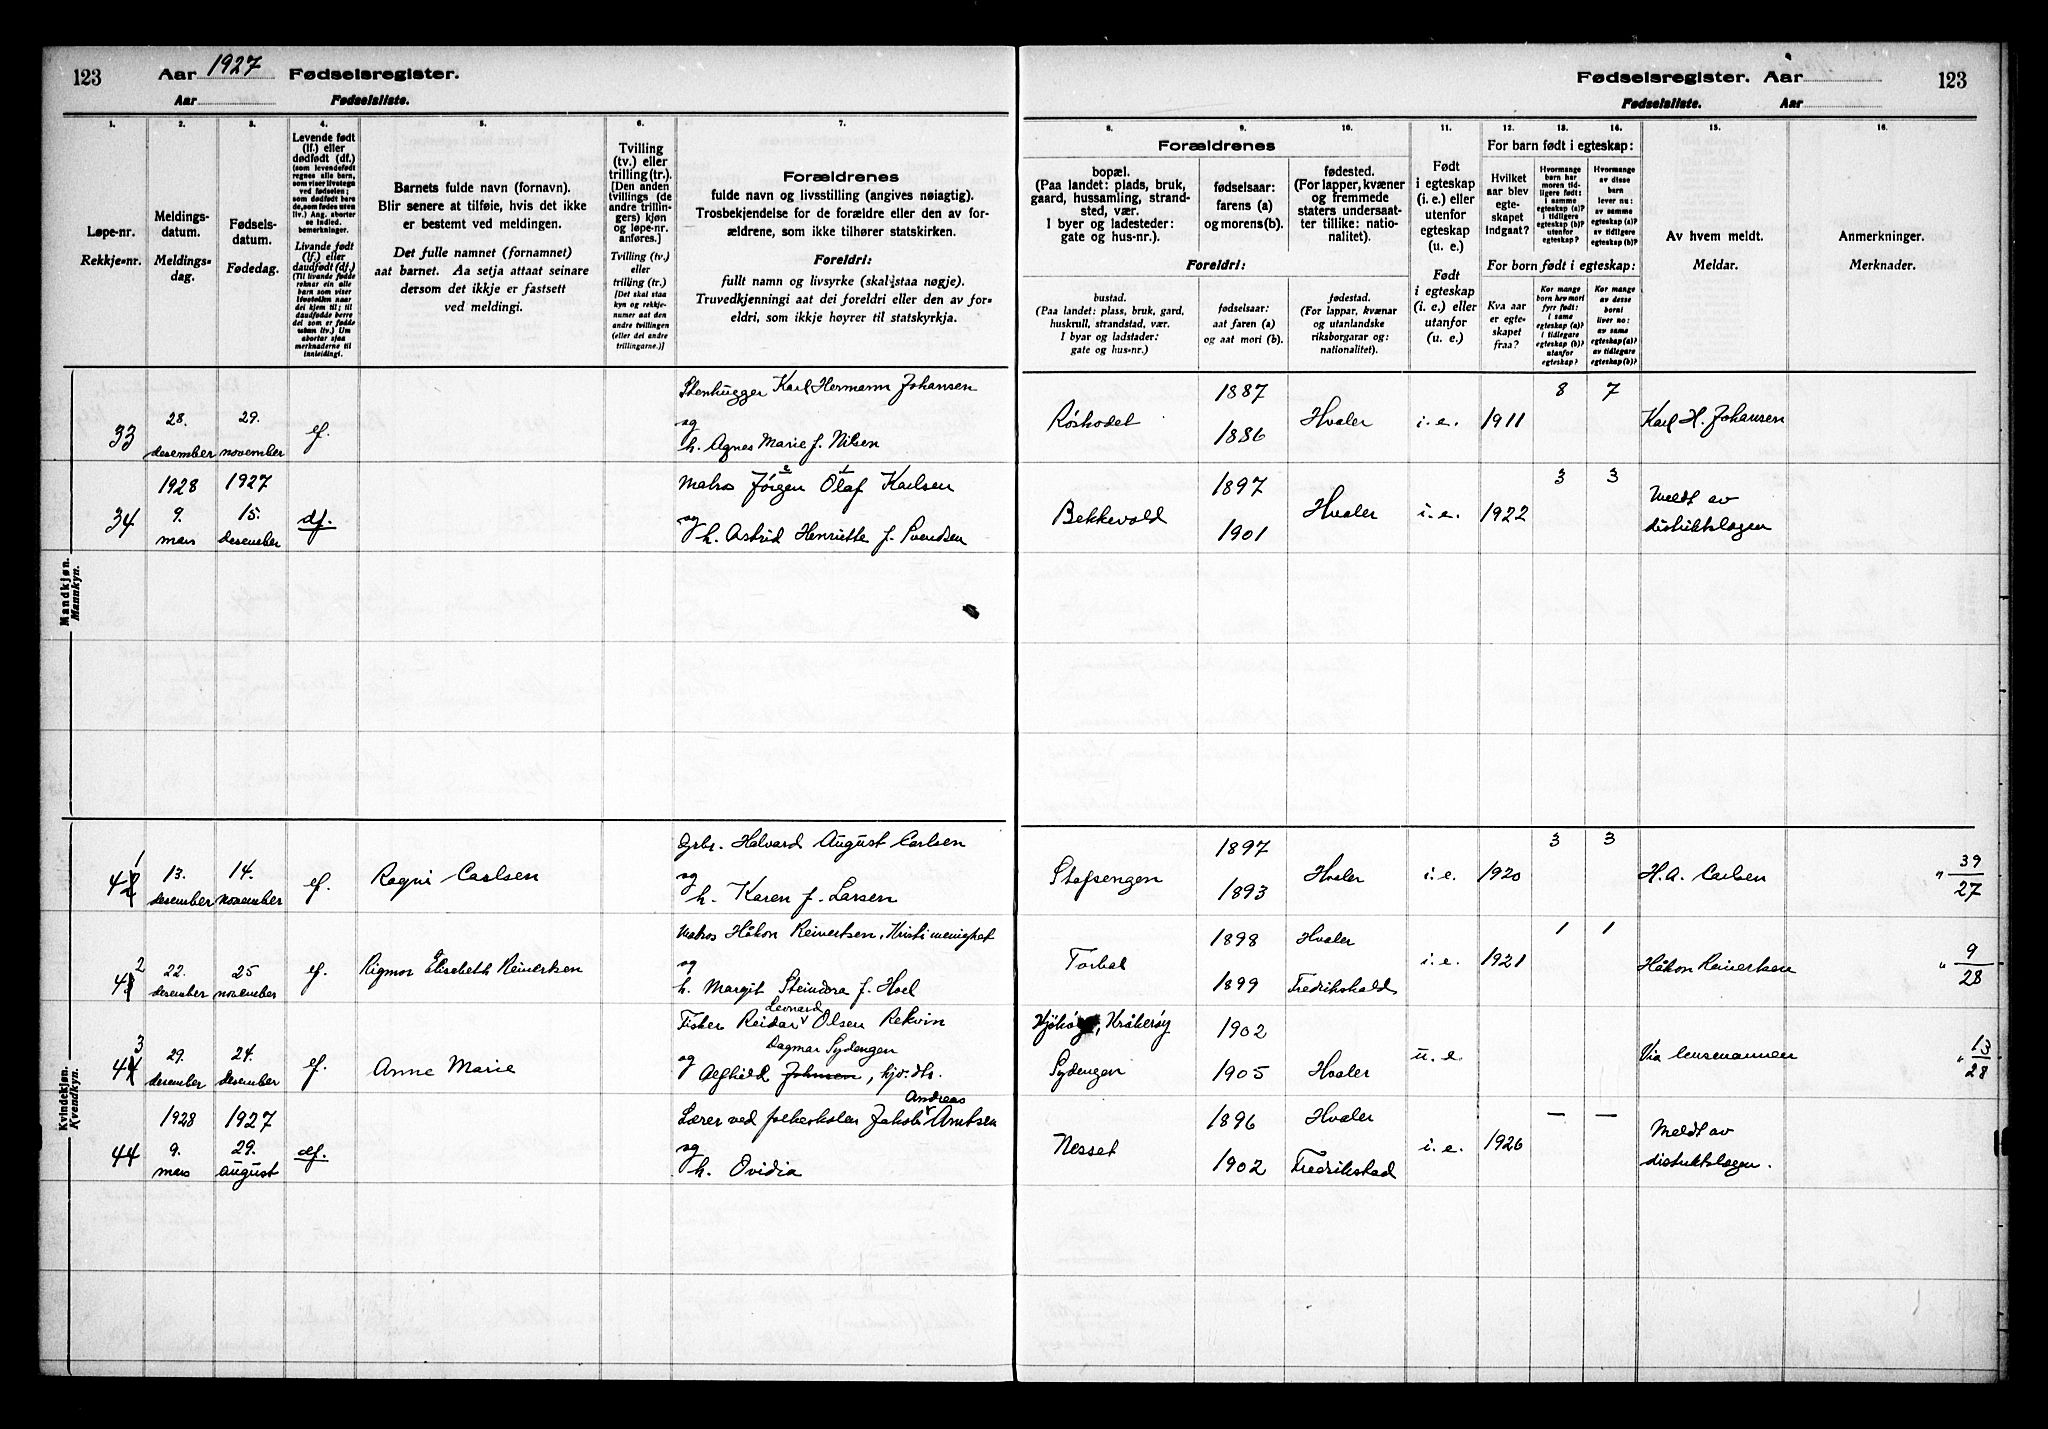 123 Aar 1927 Fødselsregister.
Aar Fødselsliste.
Fødselsregister. Aar 123
Fødselsliste. Aar
1. 2. 3. 4. 5. 6. 7.
Løpe-nr.
Rekkje-nr.
Meldings-
datum.
Meldings-
dag.
Fødsels-
datum.
Fødedag.
Levende født
(lf.) eller
dødfødt (df.)
Livande født
(lf.) eller
daudfødt (df.)
Barnets fulde navn (fornavn).
Blir senere at tilføie, hvis det ikke
er bestemt ved meldingen.
Det fulle namnet (fornamnet)
aat barnet. Aa setja attaat seinare
dersom det ikkje er fastsett
ved meldingi.
Tvilling
(tv.) eller
trilling (tr.).
[Den anden
tvillings (de
andre trillin-
gers) kjøn
og løpe-nr.
anføres.]
Tvilling (tv.)
eller
trilling (tr.)
[Det skal staa
kyn og rekkje-
numer aat den
andre tvillingen
(eller dei andre
trillingarne.)]
Forældrenes
fulde navn og livsstilling (angives nøiagtig).
Trosbekjendelse for de forældre eller den av for-
ældrene, som ikke tilhører statskirken.
Foreldri:
fullt namn og livsyrke (skal staa nøgje).
Truvedkjenningi aat dei foreldri eller den av for-
eldri, som ikkje høyrer til statskyrkja.
8. 9. 10. 11. 12. 13. 14. 15. 16.
Forældrenes
bopæl.
(Paa landet: plads, bruk,
gaard, hussamling, strand-
sted, vær.
I byer og ladesteder:
gate og hus-nr.).
fødselsaar:
farens (a)
og morens (b).
fødested.
(For lapper, kvæner
og fremmede
staters undersaat-
ter tillike: natio-
nalitet).
Foreldri:
bustad.
(Paa landet: plass, bruk, gard,
huskrull, strandstad, vær.
I byar og ladstader:
gate og hus-nr.)
fødselsaar:
aat faren (a)
og aat mori (b).
fødestad.
(For lappar, kvænar
og utanlandske
riksborgarar og:
nationalitet).
Født
i egteskap
(i. e.) eller
utenfor
egteskap
(u. e.)
Født
i egteskap
(i. e.) eller
utanfor
(u. e.)
For barn født i egteskap:
Hvilket
aar blev
egte-
skapet
indgaat?
Hvormange
barn har
moren tid-
ligere født:
i samme
egteskap (a)?
i tidligere
egteskap (b)?
utenfor
egteskap?
Hvormange
av disse
barn
lever nu:
av samme
egteskap (a)?
av tidligere
egteskap (b)?
For born født i egteskap:
Kva aar
er egte-
skapet
fraa?
Kor mange
born hev mori
fyrr født:
i same
egteskap (a)?
i tidlegare
egteskap (b)?
utanfor
egteskap?
Kor mange
av desse
borni
liver no:
av same
egteskap (a)?
av tidlegare
egteskap (b)?
Av hvem meldt.
Meldar.
Anmerkninger.
Merknader.
Mandkjøn.
Mannkyn.
Stenhugger Karl Hermann Johansen 1887 8 7
33 28. desember 29. november lf. og Røskodet Hvaler i. e. 1911 Karl H. Johansen
h. Agnes Marie f. Nilsen 1886
1928 1927 Matros Jörgen Olaf Karlsen 1897 3 3
34 9. mars 15. desember df. og Bekkevold Hvaler i. e. 1922 Meldt av distriktslægen
h. Astrid Henriette f. Svendsen 1901
Kvindekjøn.
Kvendkyn.
Grbr. Halvard August Carlsen 1897 3 3
41 13. desember 14. november lf. Ragni Carlsen og Stafsengen Hvaler i. e. 1920 H. A. Carlsen " 39/27
h. Karen f. Larsen 1893
Matros Håkon Reinertsen, Kristi menighet 1898 Hvaler 1 1
42 22. desember 25 november lf. Rigmor Elisebeth Reinertsen og Torbal i. e. 1921 Håkon Reinertsen " 9/28
h. Margit Steindora f. Hoel 1899 Fredrikshald
Fisker Reidar Leonard Olsen Rekvin Kråkerøy 1902
43 29. desember 24. desember lf. Anne Marie og Dagmar Sydengen u. e. Via lensmannen " 13/28
Alfhild Johnsen, hjv. dtr. Sydengen 1905 Hvaler
1928 1927 Lærer ved folkeskolen Jakob Andreas Arntsen 1896 Hvaler — —
44 9. mars 29. august df. og Nesset i. e. 1926 Meldt av distriktslægen.
h. Ovidia 1902 Fredrikstad